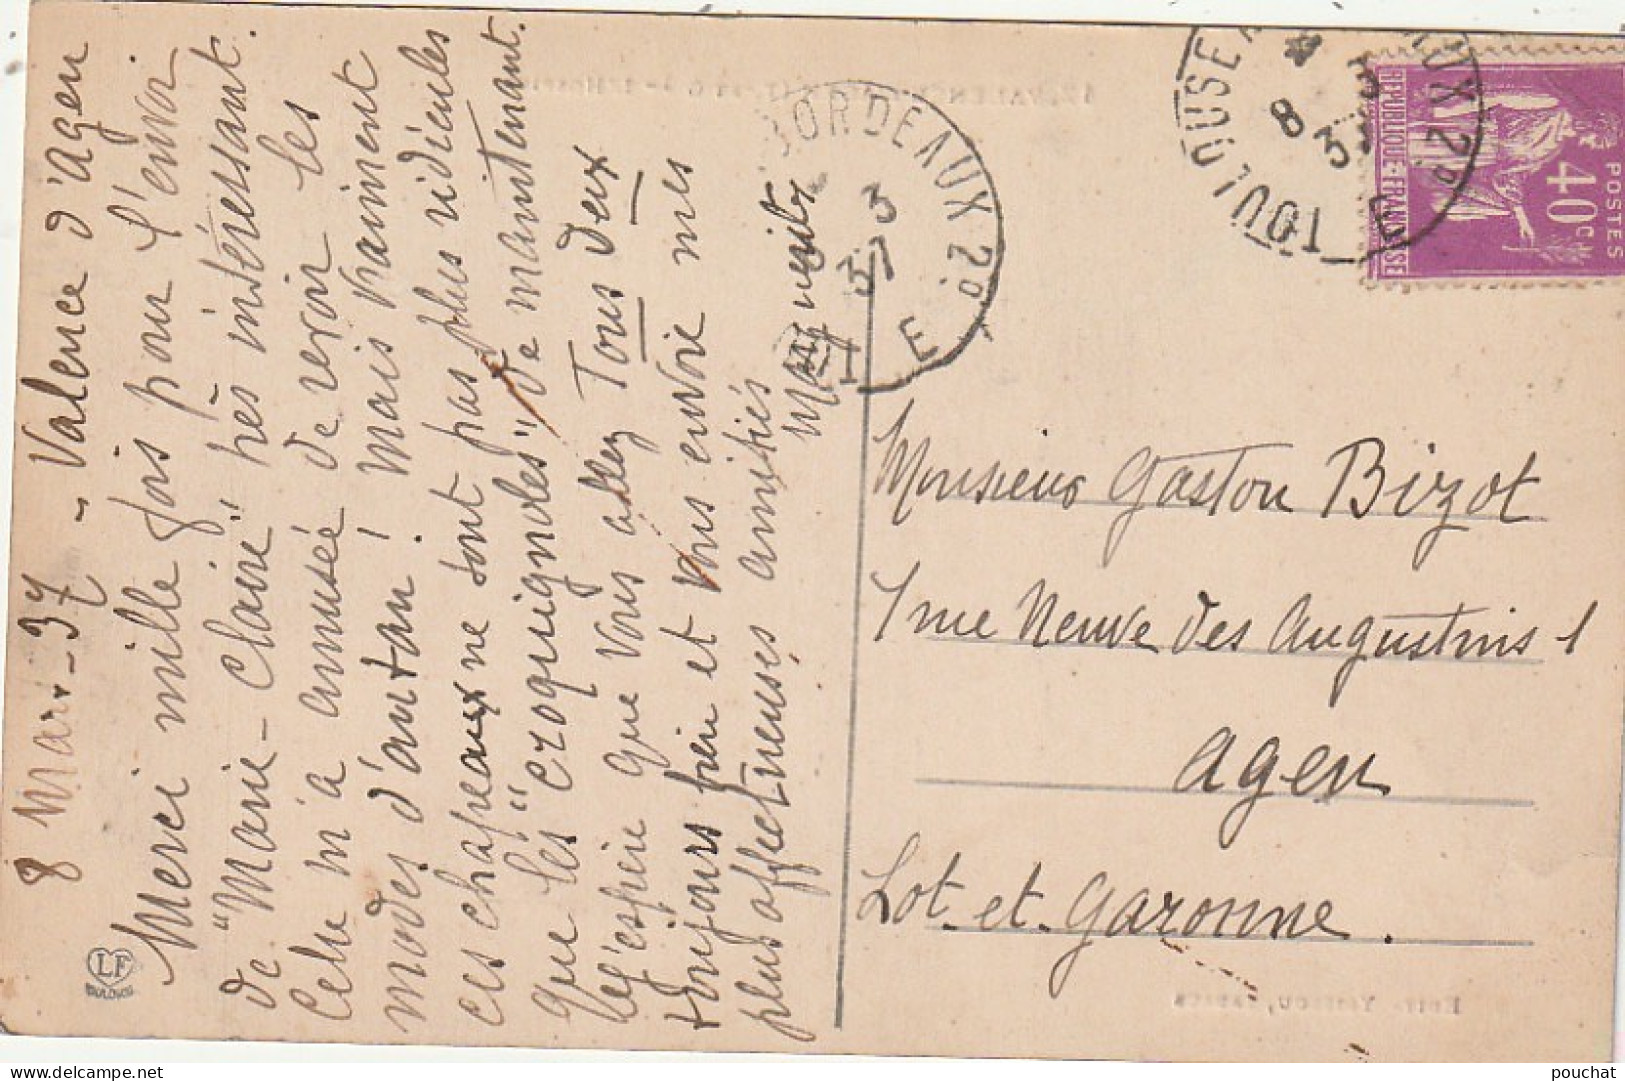 8 Mars - 37 - Valence d'Agen
Merci mille fois pour l'envoi
de "Marie-Claire" très intéressant.
Cela m'a amusée de revoir les
modes d'autan ! Mais vraiment
ces chapeaux ne sont pas plus ridicules
que les "croquignoles" de maintenant.
J'espère que vous allez Tous Deux
toujours bien et vous envoie mes
plus affectueuses amitiés
BORDEAUX
3
37
E
TOULOUSE A
8
3
E
REPUBLIQUE FRANÇAISE
POSTES
40c
Monsieur Gaston Bizot
1 rue Neuve des Augustins 1
Agen
Lot-et-Garonne.
LF
TOULOUSE
pouchat